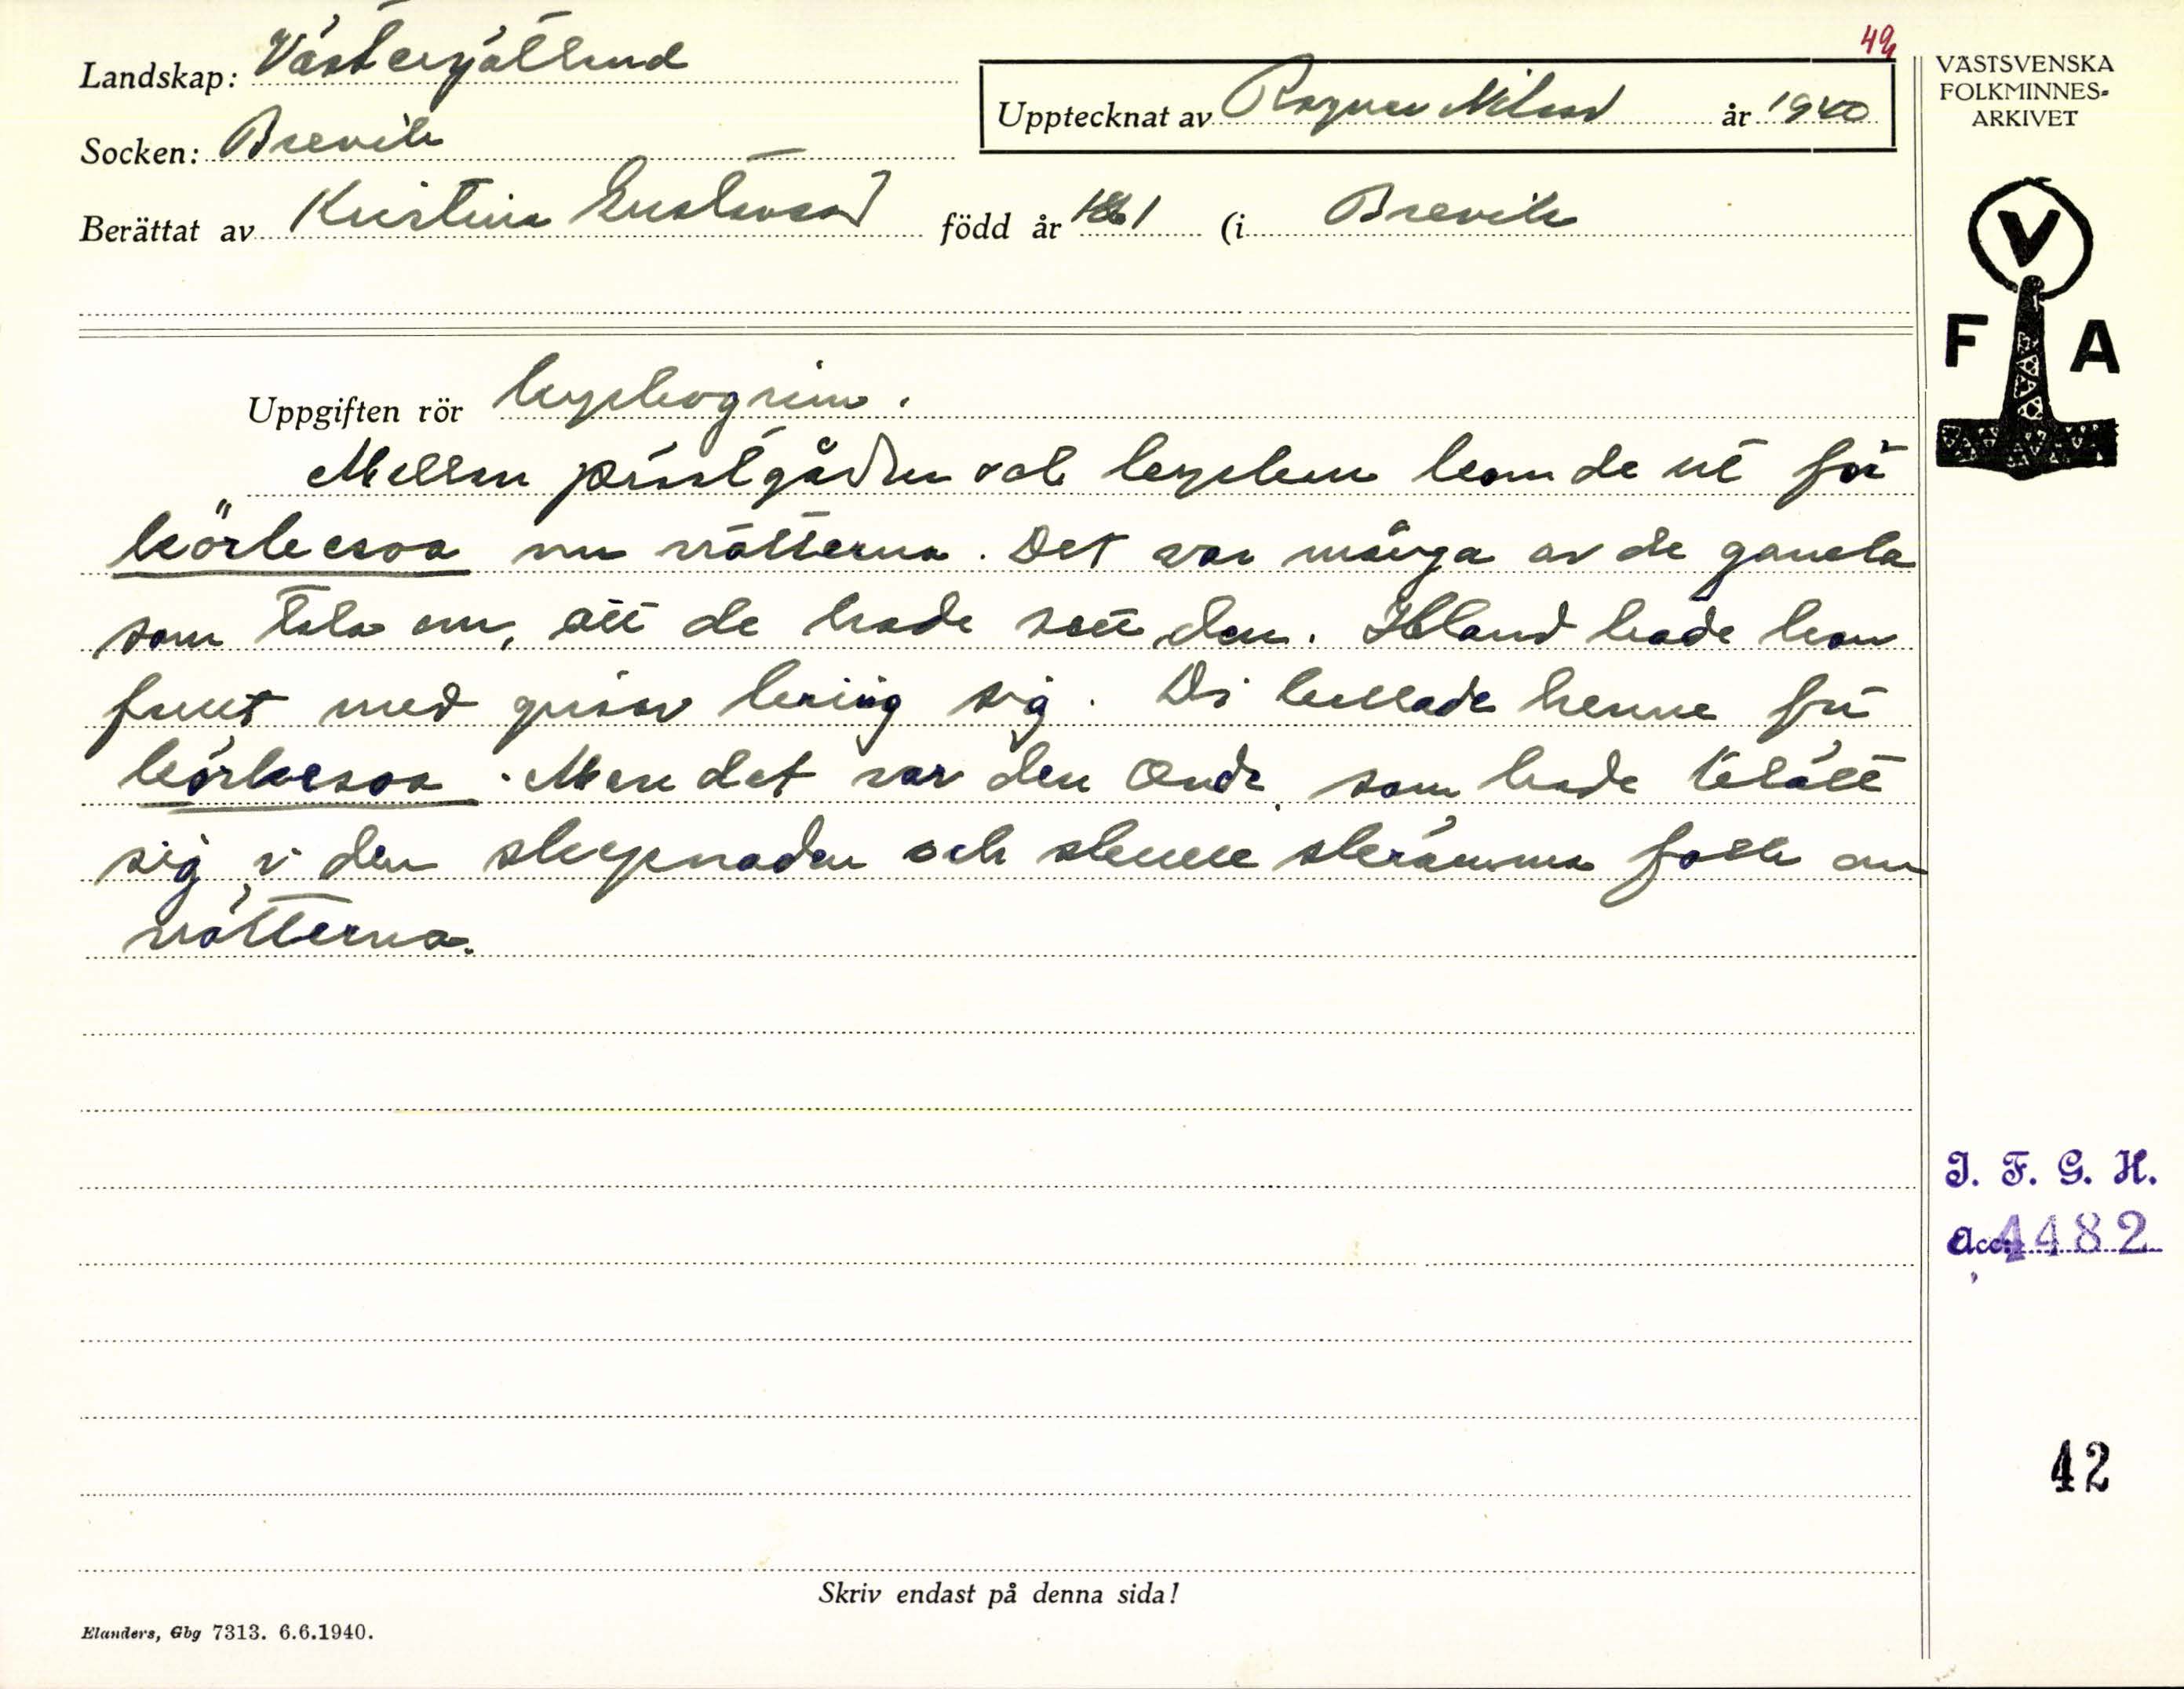 49
Landskap: Västergötland
VÄSTSVENSKA
FOLKMINNES-
ARKIVET
Upptecknat av Ragnar Nilsson år 1940
Socken: Brevik
Berättat av Kristina Gustavsson född år 1861 (i Brevik
V
F A
Uppgiften rör kyrkogrim.
Mellan prästgården och kyrkan kom de ut för
"körkesoa om nätterna. Det var många av de gamla
som tala om, att de hade sett den. Ibland hade hon
funt med grisar kring sig. Di kallade henne för
körkesoa. Men det var den Onde, som hade klätt
sig i den skepnaden och skulle skrämma folk om
nätterna.
I. F. G. H.
Acc. 4482
42
Skriv endast på denna sida!
Elanders, Gbg 7313. 6.6.1940.